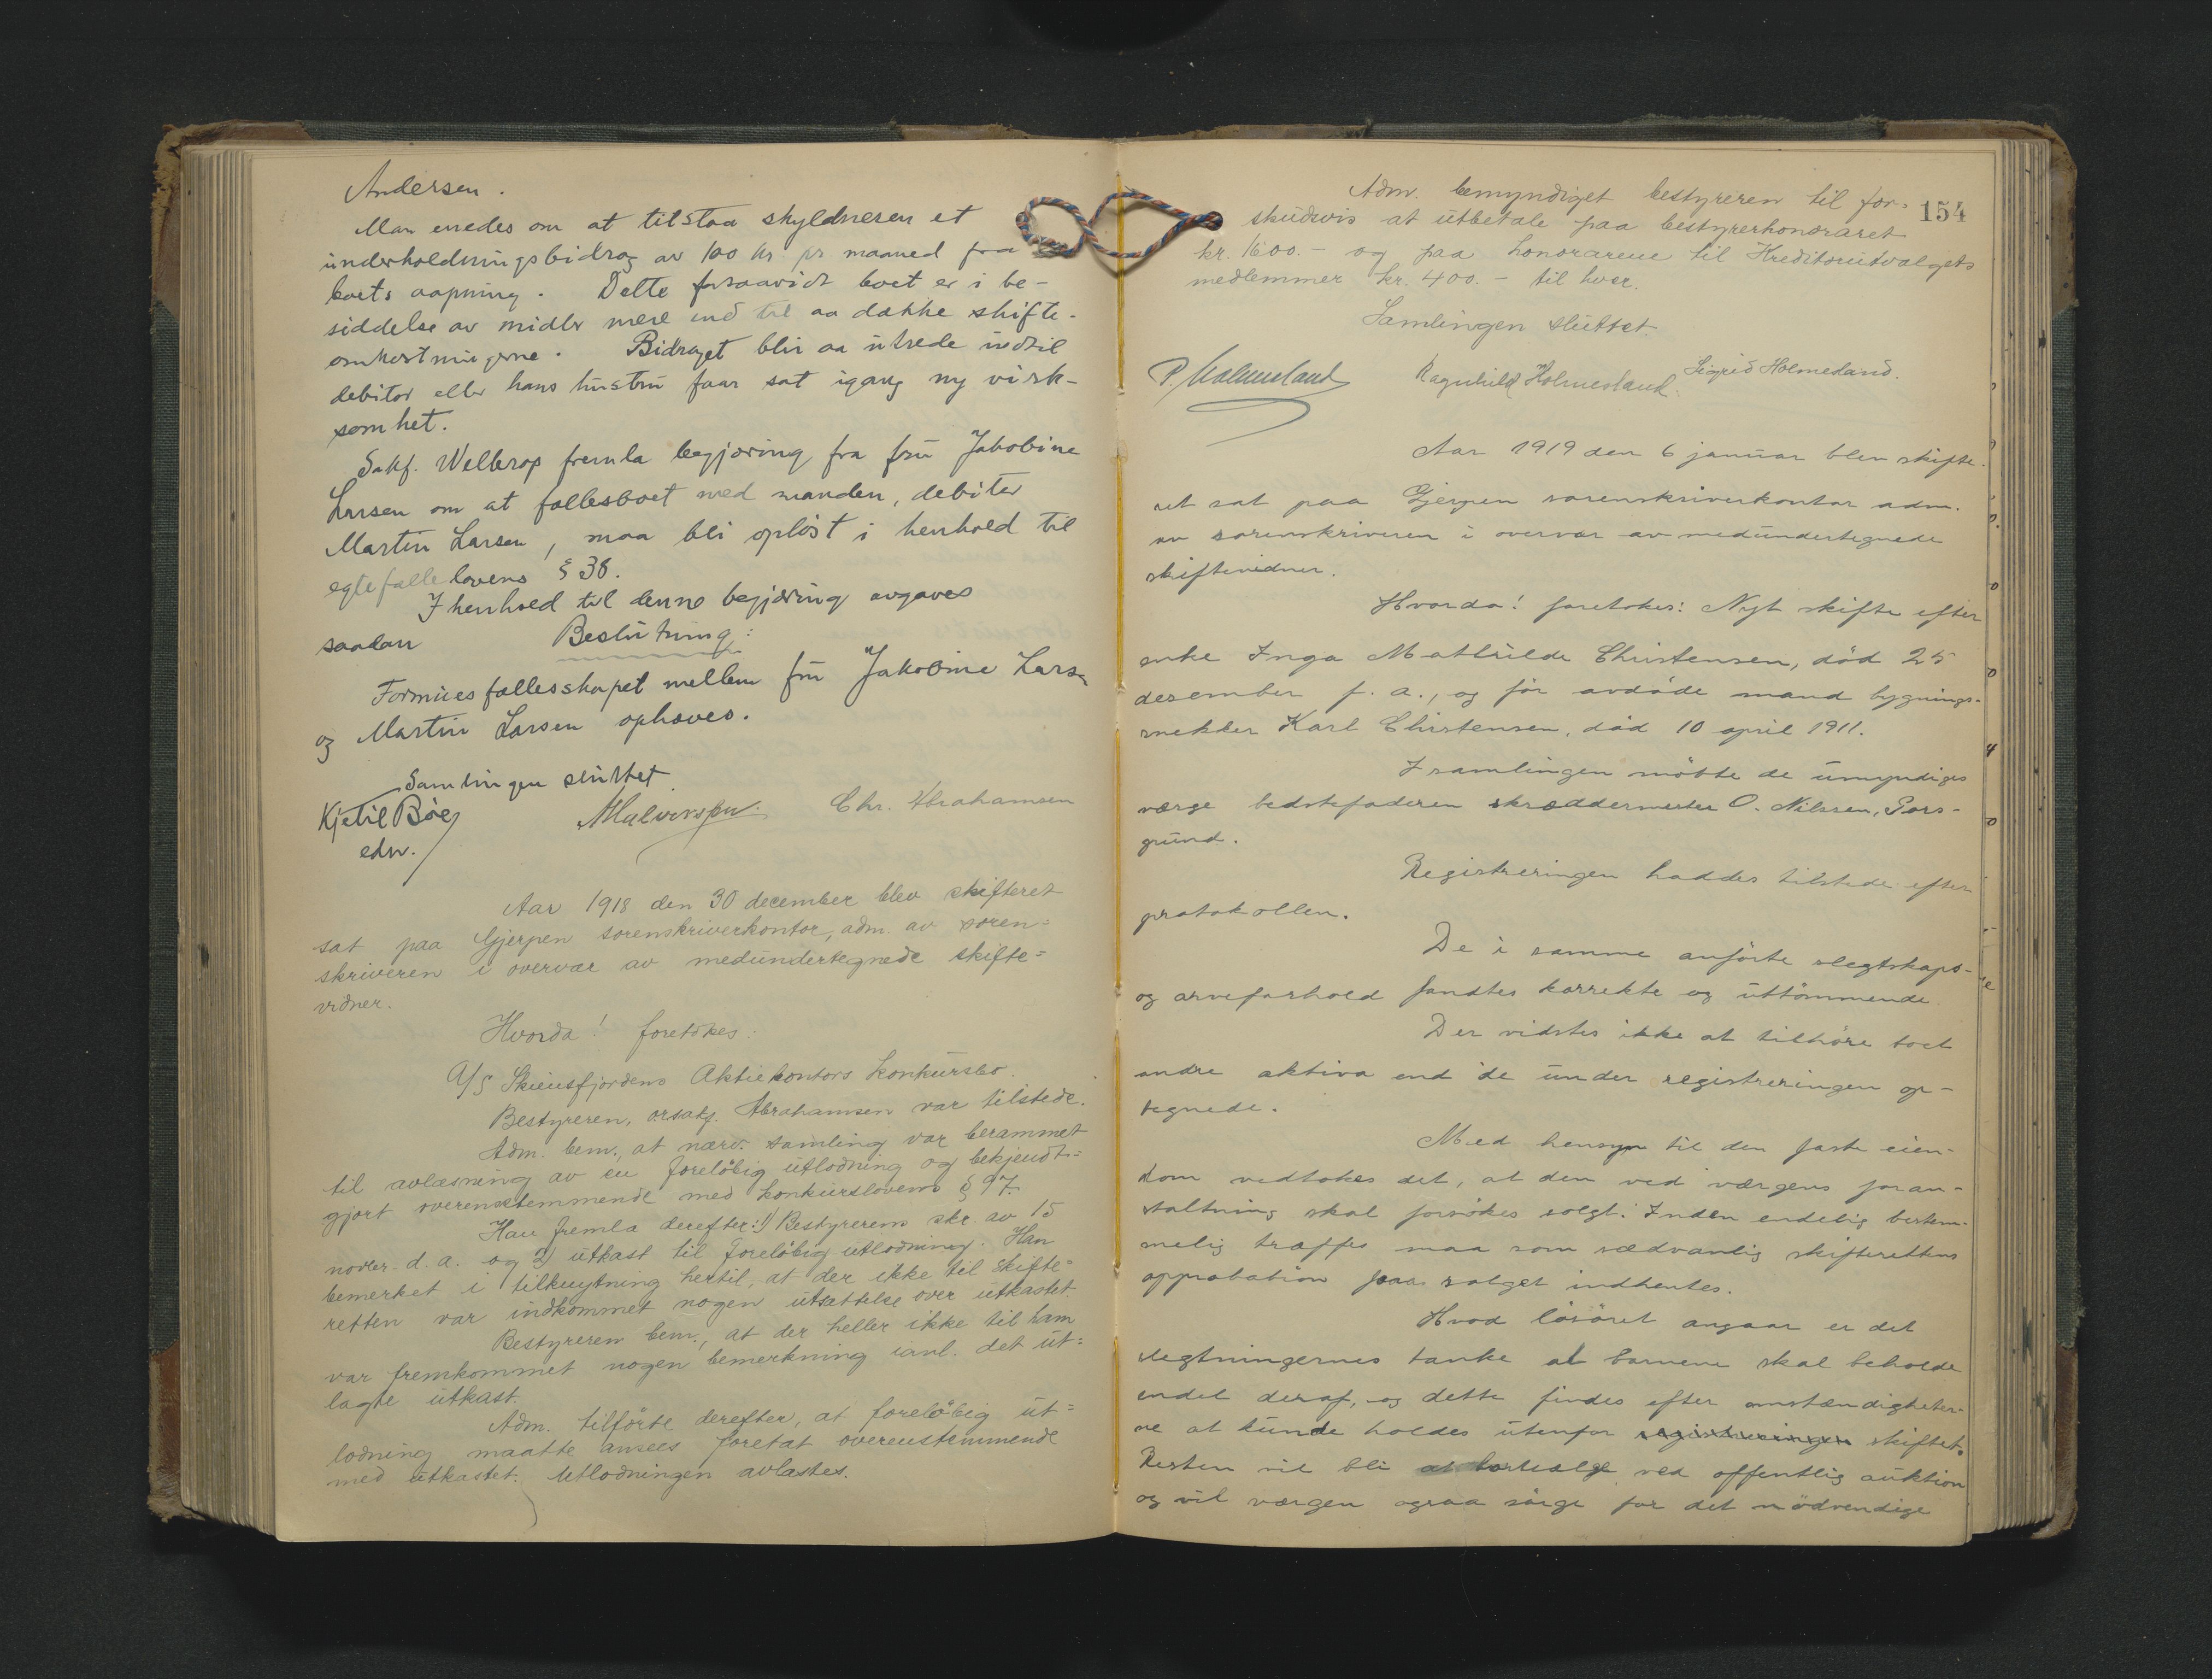 Andersen.
Man enedes om at tilstaa skyldneren et
underholdningsbidrag av 100 kr pr maaned fra
boets aapning. Dette forsaavidt boet er i be-
siddelse av midler mere end til aa dække skifte-
omkostningerne. Bidraget blir aa utrede indtil
debitor eller hans hustru faar sat igang ny virk-
somhet.
Sakf. fremla begjæring fra fru Jakobine
Larsen om at fællesboet med manden, debitor
Martin Larsen, maa bli opløst i henhold til
egtefællelovens § 38.
I henhold til denne begjæring avgaves
saadan Beslutning:
Formuesfællesskapet mellem fru Jakobine Larsen
og Martin Larsen ophæves.
Samlingen sluttet
Kjetil Bøe Chr. Abrahamsen
edv.
Aar 1918 den 30 december blev skifteret
sat paa Gjerpen sorenskriverkontor, adm. av soren=
skriveren i overvær av medundertegnede skifte=
vidner.
Hvorda! foretokes:
A/S Skiensfjordens Aktiekontors konkursbo.
Bestyreren, orsakf. Abrahamsen var tilstede.
Adm. bem., at nærv. samling var berammet
til avlæsning av en foreløbig utlodning og bekjendt=
gjort overensstemmende med konkurslovens § 97.
Han fremla derefter: 1) Bestyrerens skr. av 15
novbr. d. a. og 2) utkast til foreløbig utlodning. Han
bemerket i tilknytning hertil, at der ikke til skifte=
retten var indkommet nogen utsættelse over utkastet.
Bestyreren bem., at der heller ikke til ham
var fremkommet nogen bemerkning ianl. det ut=
lagte utkast.
Adm. tilførte derefter, at foreløbig ut=
lodning maatte ansees foretat overensstemmende
med utkastet. Utlodningen avlæstes.
154
Adm. bemyndiget bestyreren til for=
skudsvis at utbetale paa bestyrerhonoraret
kr. 1600.- og paa honorarene til Kreditorutvalgets
medlemmer kr. 400.- til hver.
Samlingen sluttet.
P. Holmesland Ragnhild Holmesland. Sigrid Holmesland.
Aar 1919 den 6 januar blev skifte-
ret sat paa Gjerpen sorenskriverkontor adm.
av sorenskriveren i overvær av medundertegnede
skiftevidner.
Hvorda! foretokes: Nyt skifte efter
enke Inga Mathilde Christensen, död 25
desember f. a., og för avdöde mand bygnings-
snekker Karl Christensen, död 10 april 1911.
I samlingen mötte de umyndiges
værge bedstefaderen skræddermester O. Nilssen, Pors-
grund.
Registreringen haddes tilstede efter
protokollen.
De i samme anförte slegtskaps-
og arveforhold fandtes korrekte og uttömmende.
Der vidstes ikke at tilhöre boet
andre aktiva end de under registreringen op-
tegnede.
Med hensyn til den faste eien-
dom vedtokes det, at den ved værgens foran-
staltning skal forsökes solgt. Inden endelig bestem-
melig træffes maa som sædvanlig skifterettens
approbation paa salget indhentes.
Hvad lösöret angaar er det
slegtningernes tanke at barnene skal beholde
endel deraf, og dette findes efter omstændigheter-
ne at kunde holdes utenfor registreringen skiftet.
Resten vil bli at bortsælge ved offentlig auktion
og vil værgen ogsaa sörge for det nödvendige